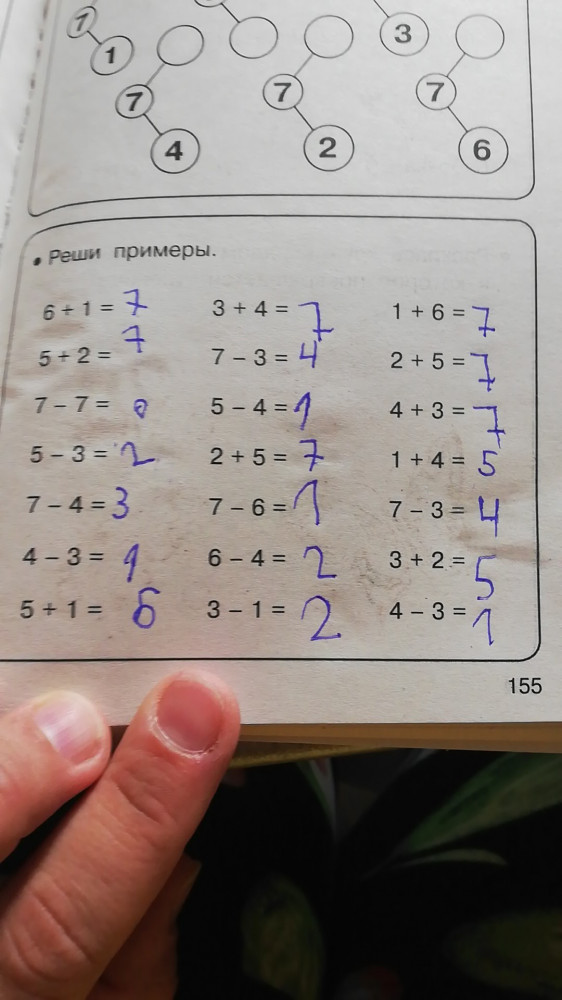 7 3
1
7 7 7
4 2 6
• Реши примеры.
6 + 1 = 7 3 + 4 = 7 1 + 6 = 7
5 + 2 = 7 7 – 3 = 4 2 + 5 = 7
7 – 7 = 0 5 – 4 = 1 4 + 3 = 7
5 – 3 = 2 2 + 5 = 7 1 + 4 = 5
7 – 4 = 3 7 – 6 = 1 7 – 3 = 4
4 – 3 = 1 6 – 4 = 2 3 + 2 = 5
5 + 1 = 6 3 – 1 = 2 4 – 3 = 1
155